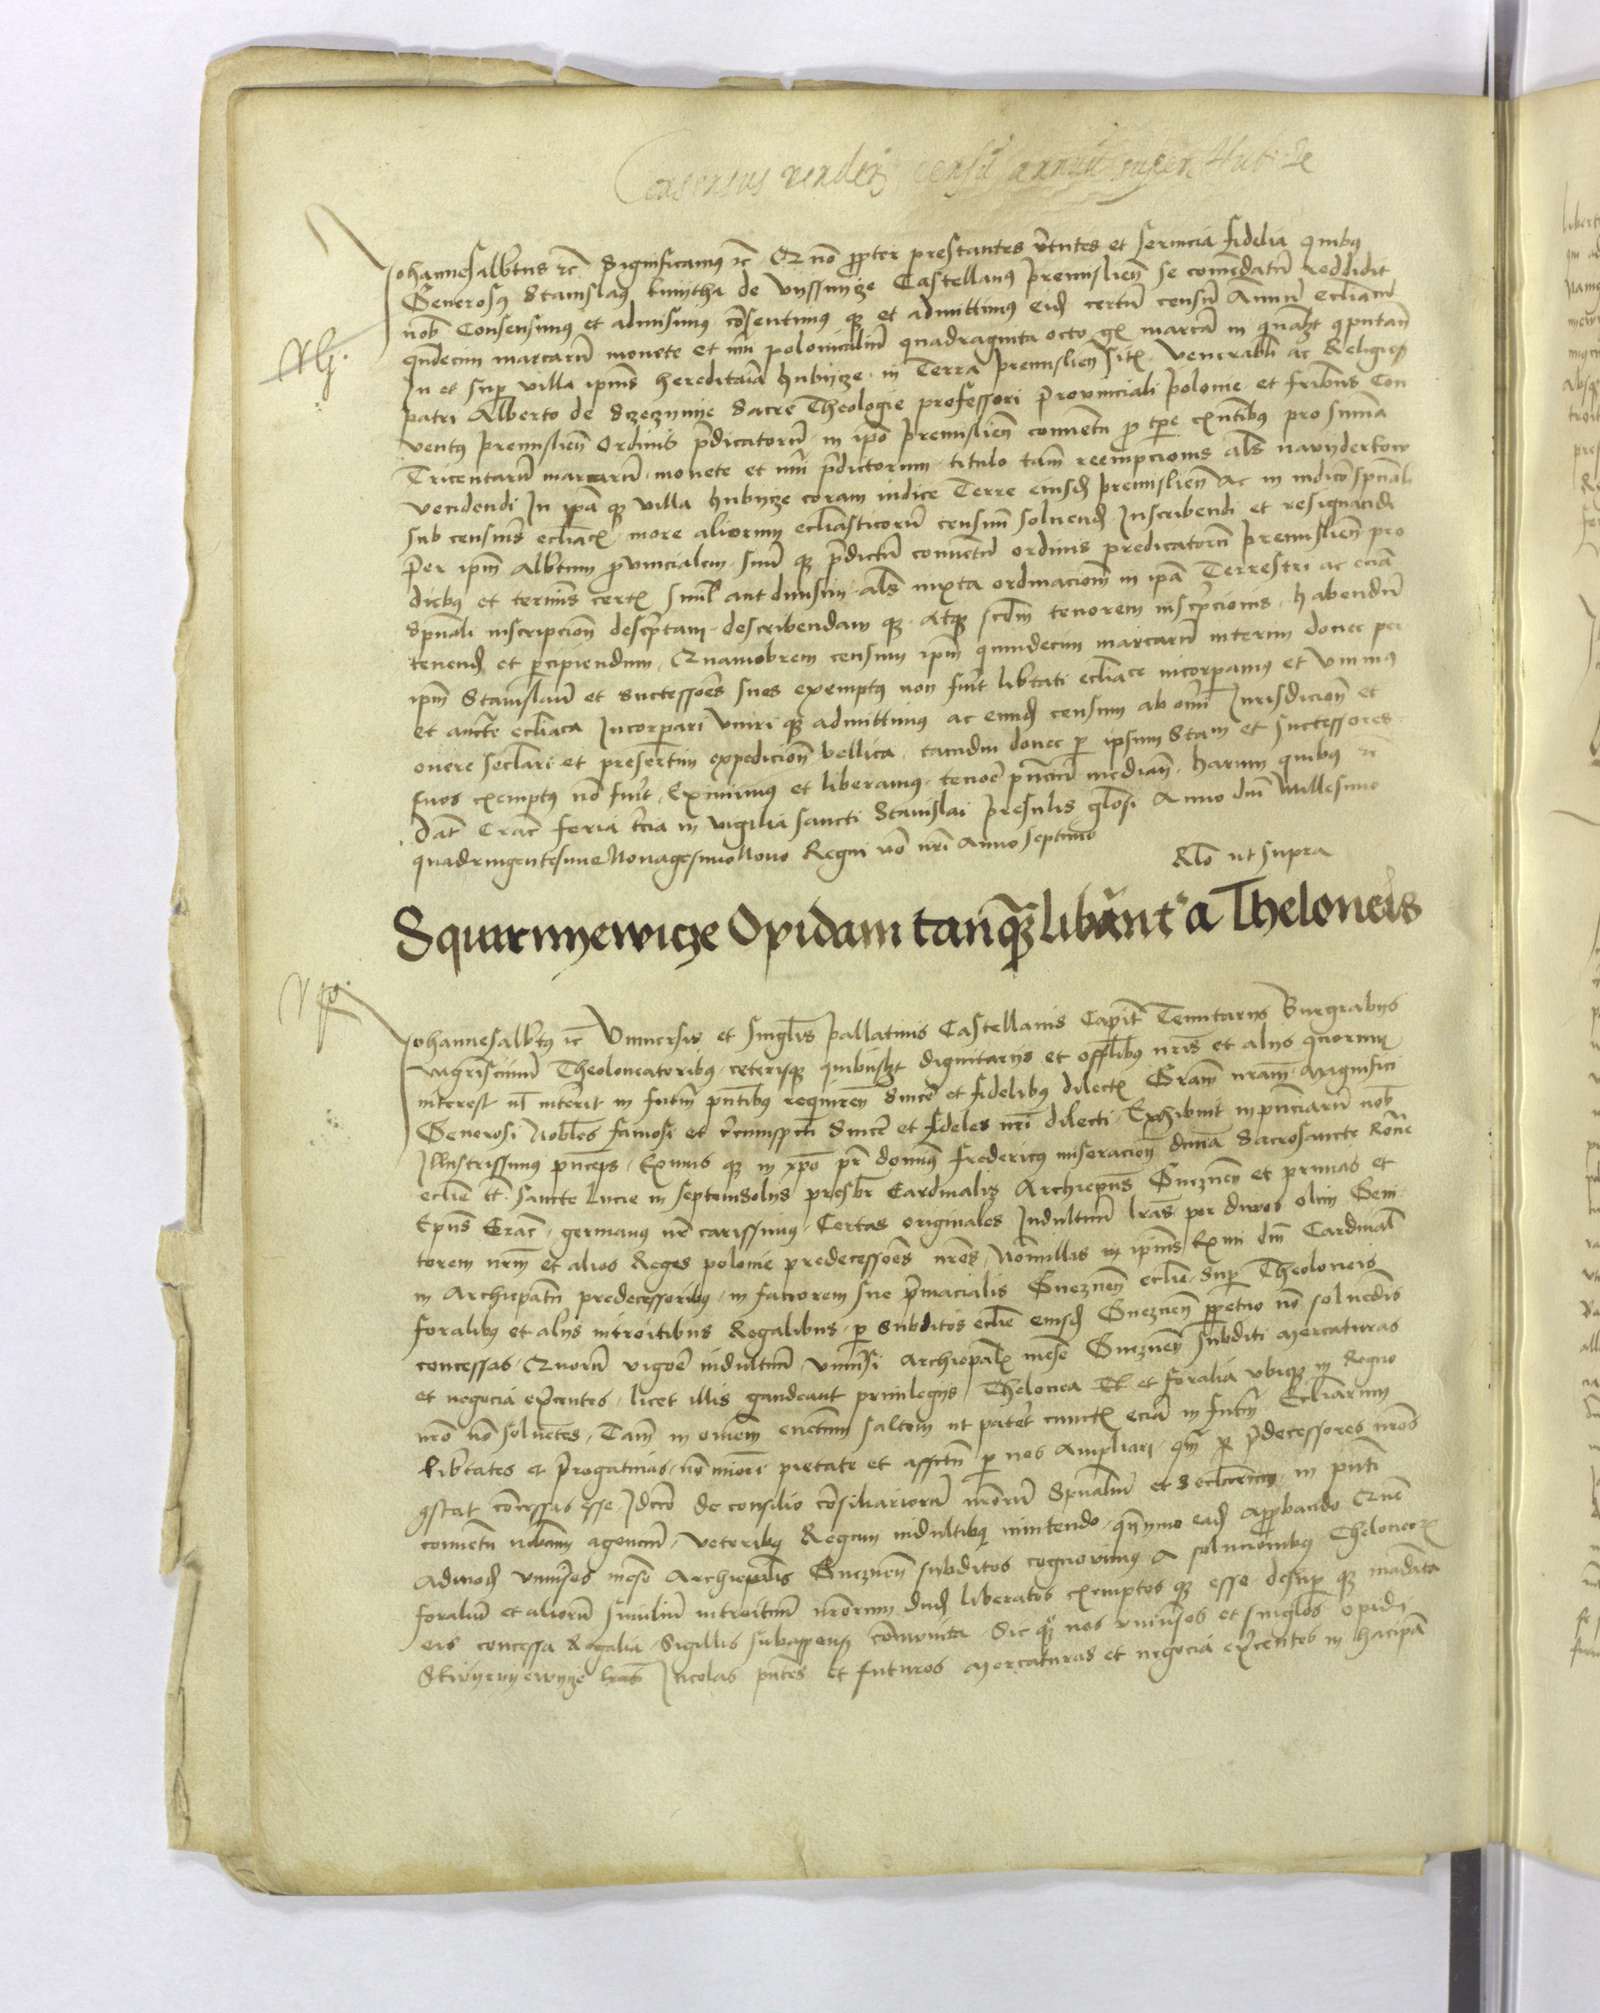 Consensus vendendi censum annuum super Hub
Johannesalbertus rc Significamus rc Quo propter prestantes virtutes et servicia fidelia quibus
Generosus Stanislaus kmytha de vyssnycze Castellanus premisliensis se comendatum reddidit
nobis Consensimus et admisimus consentimus que et admittimus eidem certum censum Annuum eccliasticum
quindecim marcarum monete et numeri polonicalium quadraginta octo grossos marcam in quamlibet computando
In et super villa ipsius hereditaria hubnycze in Terra premisliensi sita venerabili ac Religioso
patri Alberto de Sczeczynye Sacre Theologie professori provinciali polonie et fratribus Con
ventus premisliensis Ordinis predicatorum in ipso premisliensi conventu pro tempore existentibus pro summa
Tricentarum marcarum monete et numeri predictorum titulo tamen reempcionis als nawyderkow
vendendi In ipsa que villa hubnycze coram iudice Terre eiusdem premisliensis Ac in iudicio spirituali
sub censuris eccliasticis more aliorum eccliasticorum censuum solvendum Inscribendi et resignandi
per ipsum Albertum provincialem suum que predictum conventum ordinis predicatorum premisliensem pro
diebus et terminis certis simul aut divisim als iuxta ordinacionem in ipsa Terrestri ac eciam
spirituali inscripcione descriptam describendam que Atque secundum tenorem inscripcionis habendum
tenendum et percipiendum Quamobrem censum ipsum quindecim marcarum interim donec per
ipsum Stanislaum et successores suos exemptus non fuerit libertati eccliastice incorporamus et unimus
et auctoritate eccliastica Incorporari uniri que admittimus ac eundem censum ab omni Jurisdicione et
onere seculari et presertim expedicione bellica tamdiu donec per ipsum Stanislaum et successores
suos exemptus non fuerit Eximimus et liberamus tenore presencium mediante harum quibus rc
Datum Cracovie feria tercia in vigilia sancti Stanislai presulis gloriosi Anno domini Millesimo
quadringentesimo Nonagesimo Nono Regni vero nostri Anno septimo
Relacio ut supra
Squirnyewicze Opidani tanquam liberantur a Theloneis
Johannesalbertus rc Universis et singulis pallatinis Castellanis Capitaneis Tenutariis Burgrabiis
vigerisciinis Theoloneatoribus ceterisque quibuslibet dignitariis et officialibus nostris et aliis quorum
interest vel intererit in futurum presentibus requirendis Sincere et fidelibus dilectis Graciam nostram Magnifici
Generosi Nobiles famosi et circumspecti Sincere et fideles nostri dilecti Exhibuit in presenciarum nobis
Illustrissimus princeps Eximius que in christo pater dominus fredericus miseracione divina Sacrosancte Romane
ecclesie tituli Sancte Lucie in septemsoliis presbiter Cardinalis Archiepiscopus Gnezuensis et primas et
Episcopus Cracoviensis germanus noster carissimus Certas originales Indultuum literas per divos olim Geni
torem nostrum et alios Reges polonie predecessores nostros Nonnullis in ipsius Eximii domini Cardinalis
in Archiepiscopatu predecessoribus in favorem sue primacialis Gneznensis ecclesie super Theoloneis
foralibus et aliis introitibus Regalibus per Subditos ecclesie eiusdem Gneznensis perpetuo non solvendis
concessas Quorum vigore indultuum universi Archiepiscopalis mense Gneznensis Subditi mercaturas
et negocia exercentes licet illis gaudeant privilegiis Thelonea et foralia ubique in Regno
nostro non solventes Tamen in omnem eventum saltem ut pateret cunctis eciam in futurum Ecclesiarum
libertates et prerogativas non minori pietate et affectu per nos Ampliari quam per predecessores nostros
constat concessas esse Idcirco de consilio consiliariorum nostrorum Spiritualium et Secularium in presenti
conventu nobiscum agencium Veteribus Regum indultibus innitendo quinymo eadem approbando Quem
admodum universos mense Archiepiscopalis Gneznensis subditos cognovimus A solucionibus Theloneorum
foralium et aliorum similium introituum nostrorum dudum liberatos exemptos que esse desuper que mandata
eis concessa Regalia Sigillis subappensis communita Sic quoque nos universos et singulos opidi
Skwyernyewycze Incolas presentes et futuros mercaturas et negocia exercentes in hac ipsa